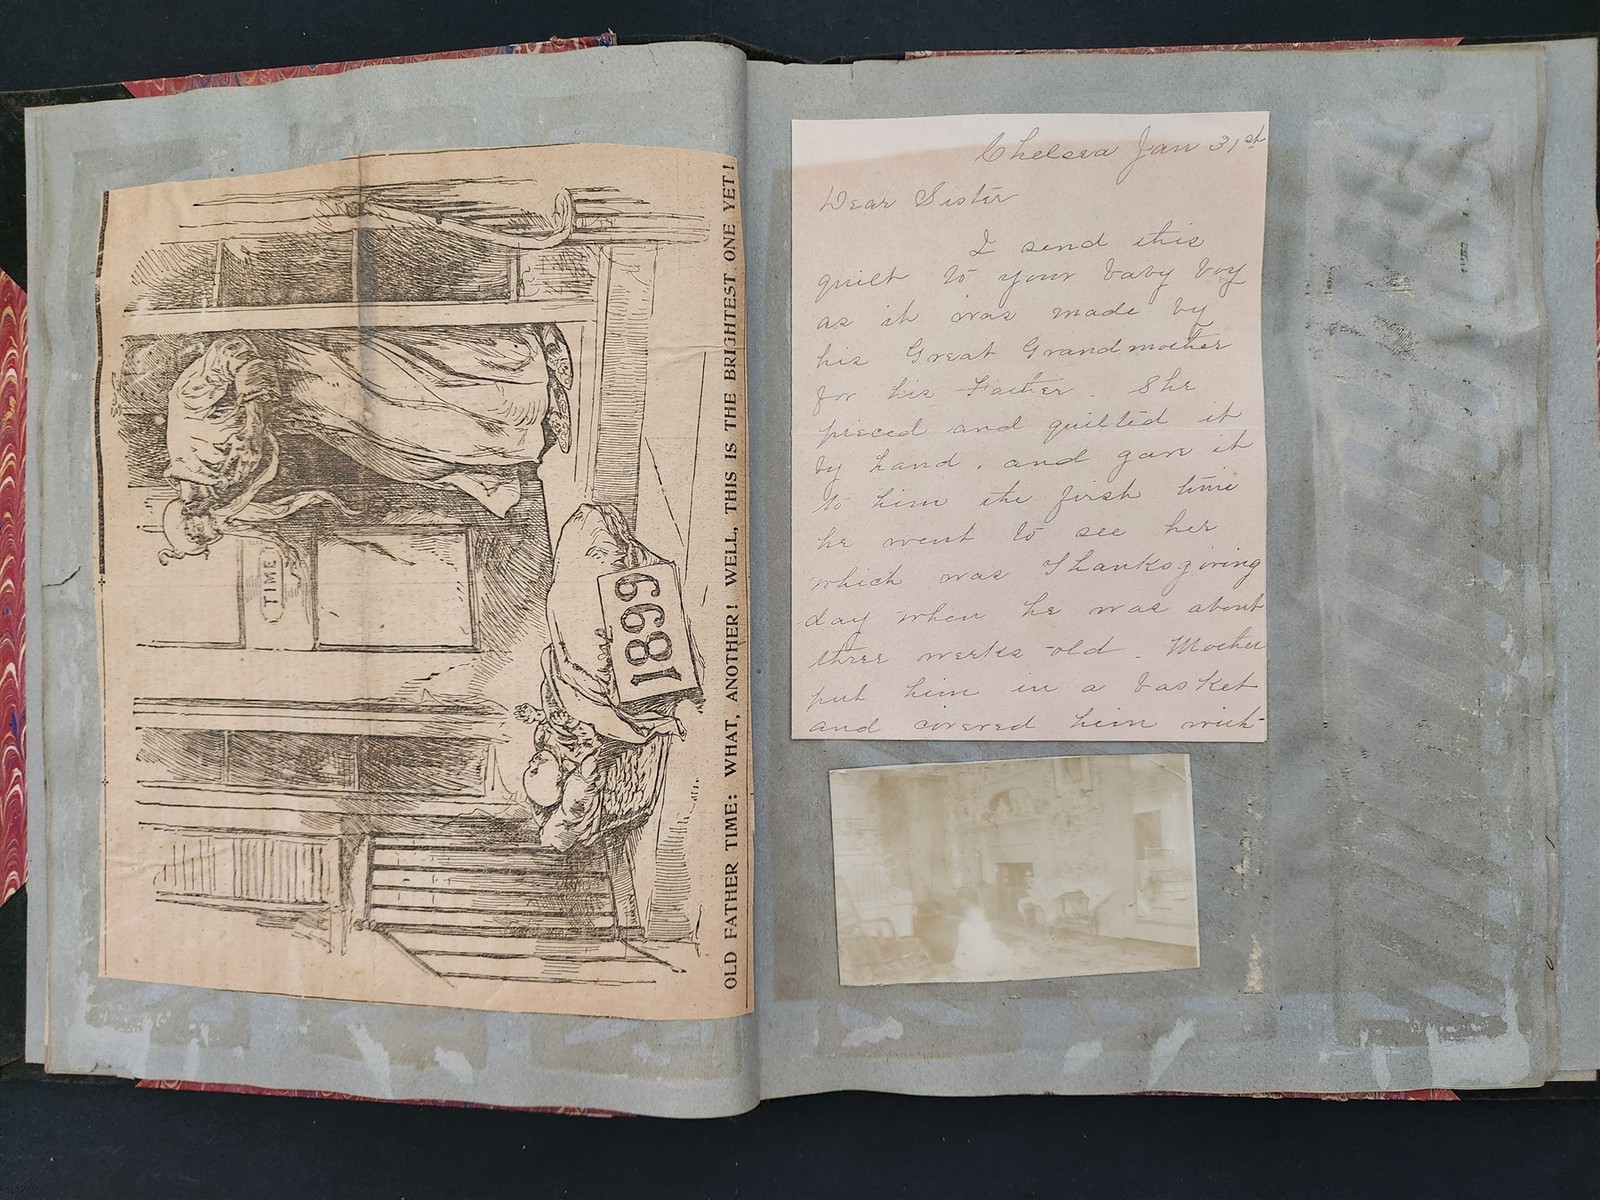 TIME
1899
OLD FATHER TIME: WHAT, ANOTHER! WELL, THIS IS THE BRIGHTEST ONE YET!
Chelsea Jan 31st
Dear Sister
I send this
quilt to your baby boy
as it was made by
his Great Grandmother
for his Father. She
pieced and quilted it
by hand, and gave it
to him the first time
he went to see her
which was Thanksgiving
day when he was about
three weeks old. Mother
put him in a basket
and covered him with